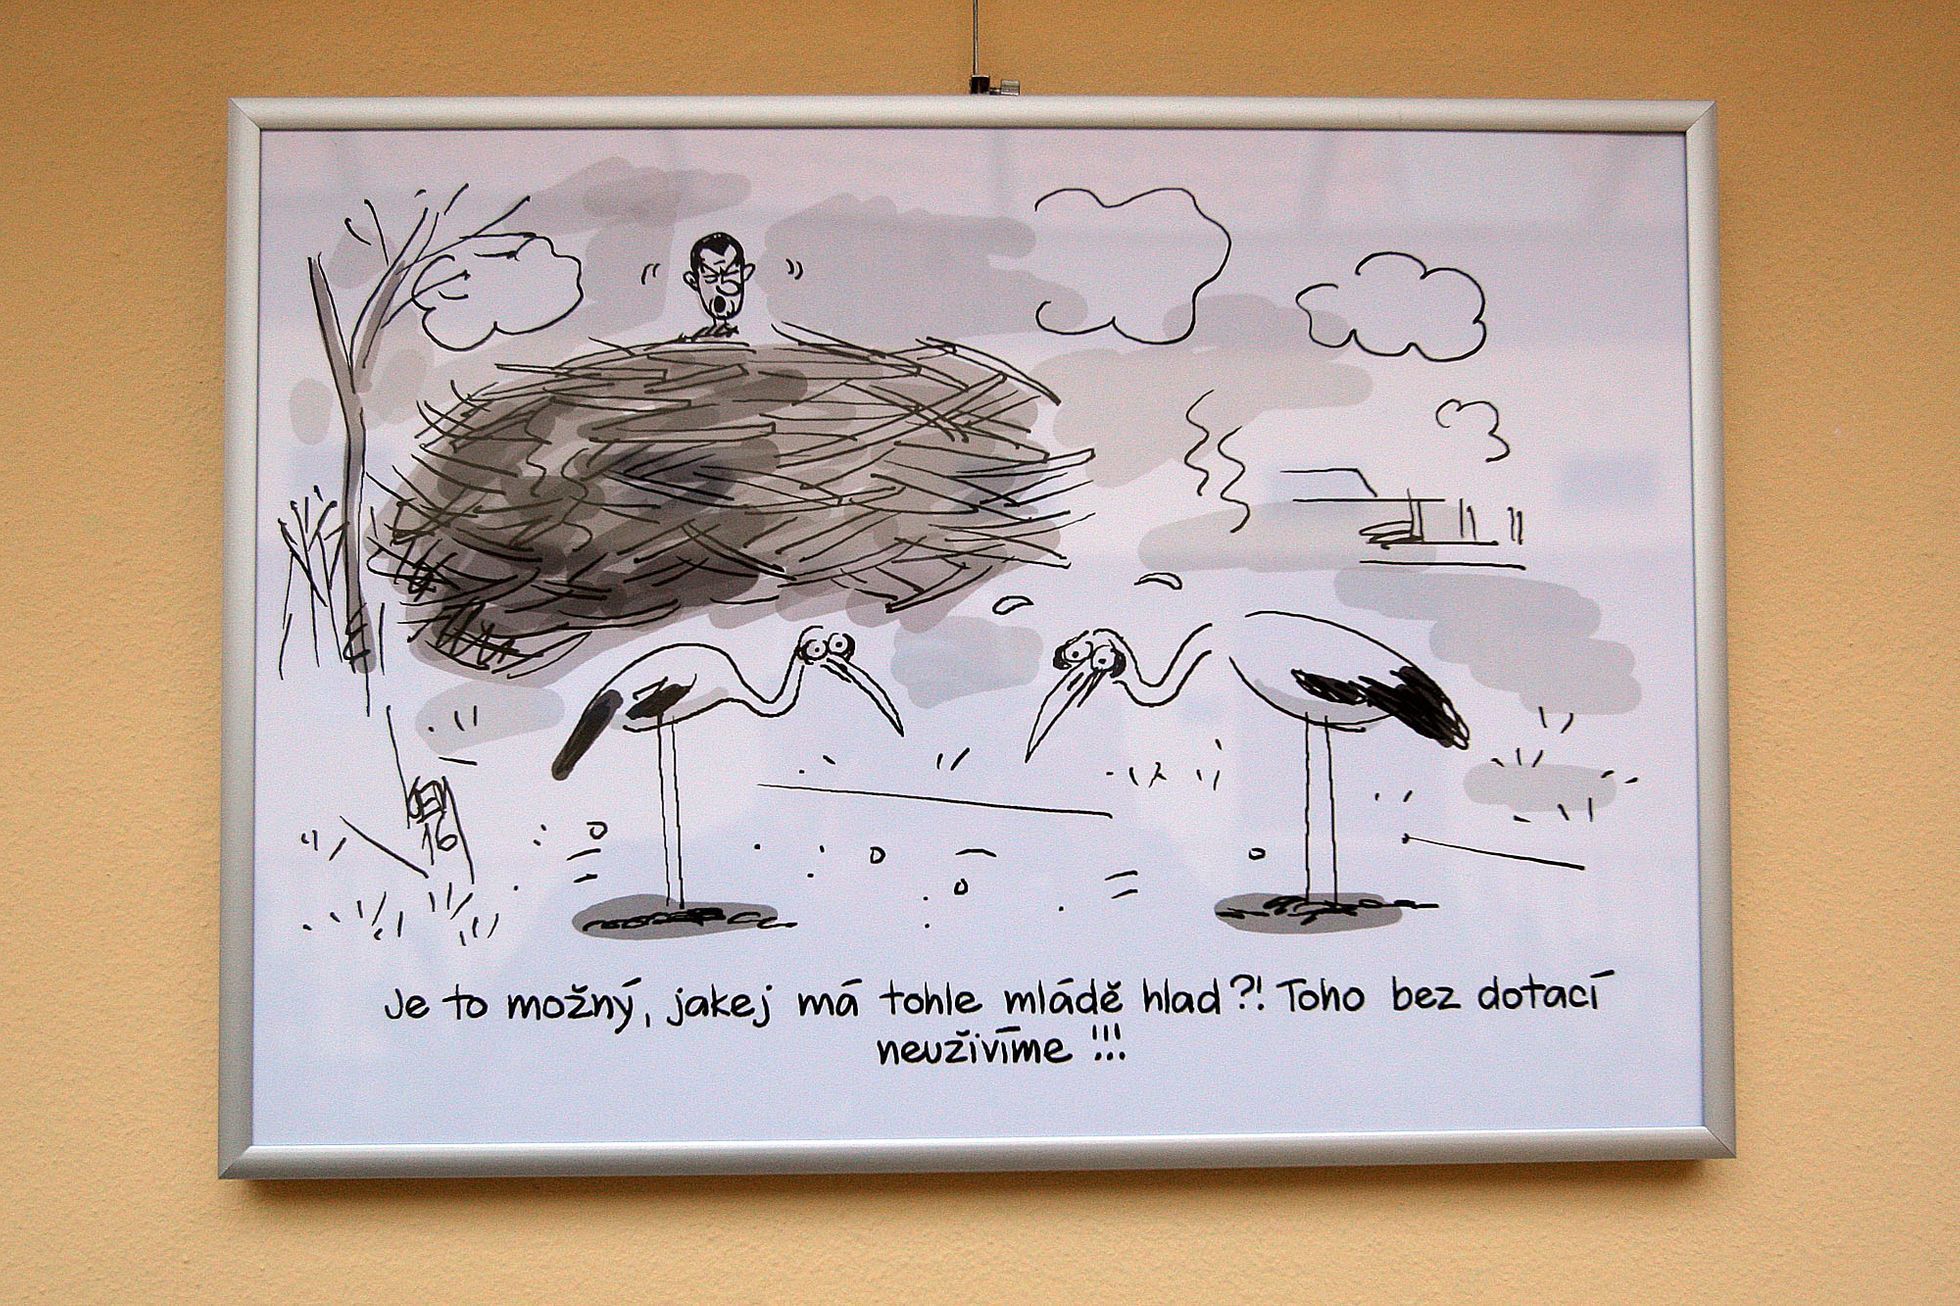 GEN
16
Je to možný, jakej má tohle mládě hlad?! Toho bez dotací
neuživíme!!!